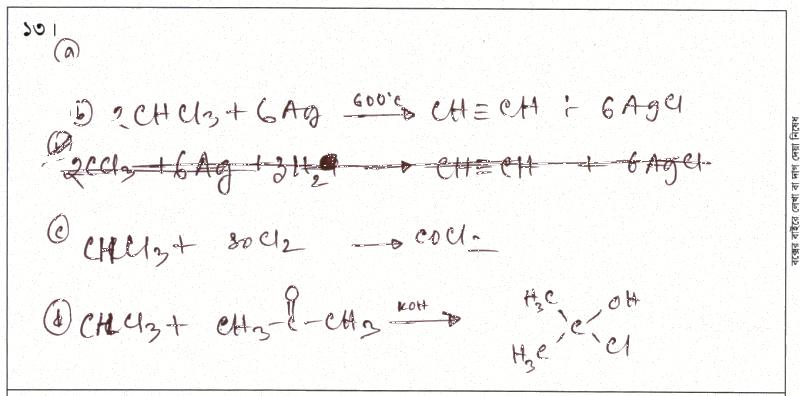 ১৩।
(a)
b) 2CHCl3 + 6Ag 600°C → CH≡CH + 6AgCl
(b)
2CCl3 + 6Ag + 3H2 → CH≡CH + 6AgCl
(c) CHCl3 + SOCl2 → COCl2
(d) CHCl3 + CH3-C(=O)-CH3 KOH → H3C H3C C OH Cl
বক্সের বাইরে লেখা বা দাগ দেয়া নিষেধ